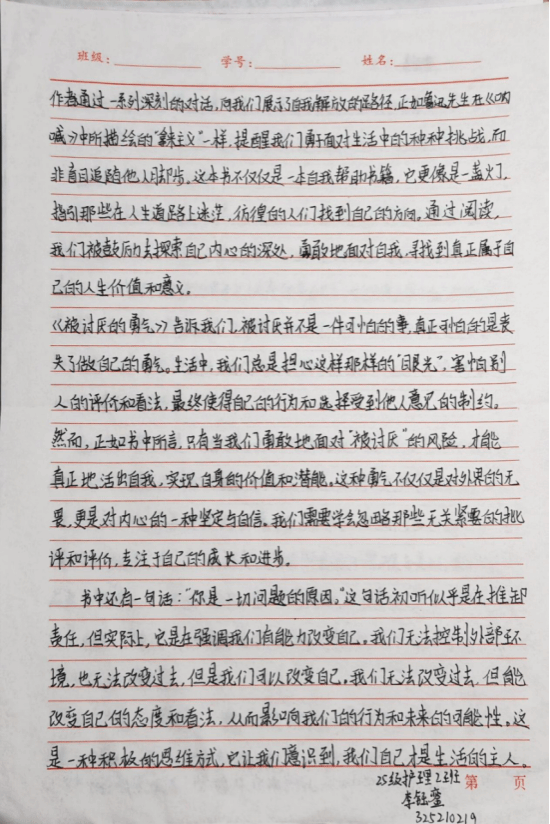 班级: 学号: 姓名:
作者通过一系列深刻的对话,向我们展示了自我解放的路径,正如鲁迅先生在《呐
喊》中所描绘的"拿来主义"一样,提醒我们勇于面对生活中的种种挑战,而
非盲目追随他人却步。这本书不仅仅是一本自我帮助书籍,它更像是一盏灯,
指引那些在人生道路上迷茫,彷徨的人们找到自己的方向。通过阅读,
我们被鼓励去探索自己内心的深处,勇敢地面对自我,寻找到真正属于自
己的人生价值和意义。
《被讨厌的勇气》告诉我们,被讨厌并不是一件可怕的事,真正可怕的是丧
失了做自己的勇气。生活中,我们总是担心这样那样的"眼光",害怕别
人的评价和看法,最终使得自己的行为和选择受到他人意见的制约。
然而,正如书中所言,只有当我们勇敢地面对"被讨厌"的风险,才能
真正地活出自我,实现自身的价值和潜能。这种勇气不仅仅是对外界的无
畏,更是对内心的一种坚定与自信。我们需要学会忽略那些无关紧要的批
评和评价,专注于自己的成长和进步。
书中还有一句话:"你是一切问题的原因。"这句话初听似乎是在推卸
责任,但实际上,它是在强调我们有能力改变自己。我们无法控制外部环
境,也无法改变过去,但是我们可以改变自己。我们无法改变过去,但能
改变自己的态度和看法,从而影响我们的行为和未来的可能性。这
是一种积极的思维方式,它让我们意识到,我们自己才是生活的主人。
25级护理2班 第 页
李钰
325210219